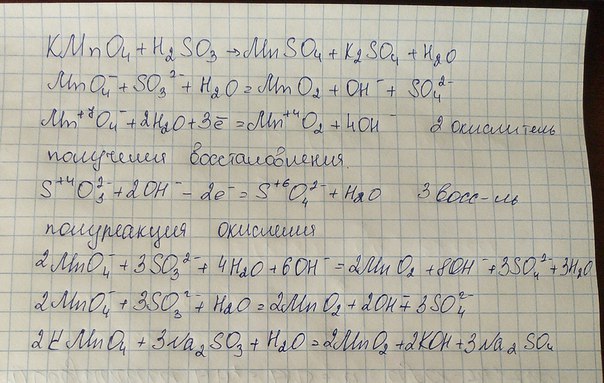 KMnO₄ + H₂SO₃ → MnSO₄ + K₂SO₄ + H₂O
MnO₄⁻ + SO₃²⁻ + H₂O = MnO₂ + OH⁻ + SO₄²⁻
Mn⁺⁷O₄⁻ + 2H₂O + 3ē = Mn⁺⁴O₂ + 4OH⁻ 2 окислитель
восстановления.
S⁺⁴O₃²⁻ + 2OH⁻ - 2e⁻ = S⁺⁶O₄²⁻ + H₂O 3 восс-ль
полуреакция окисления
2MnO₄⁻ + 3SO₃²⁻ + 4H₂O + 6OH⁻ = 2MnO₂ + 8OH⁻ + 3SO₄²⁻ + 3H₂O
2MnO₄⁻ + 3SO₃²⁻ + H₂O = 2MnO₂ + 2OH⁻ + 3SO₄²⁻
2KMnO₄ + 3Na₂SO₃ + H₂O = 2MnO₂ + 2KOH + 3Na₂SO₄